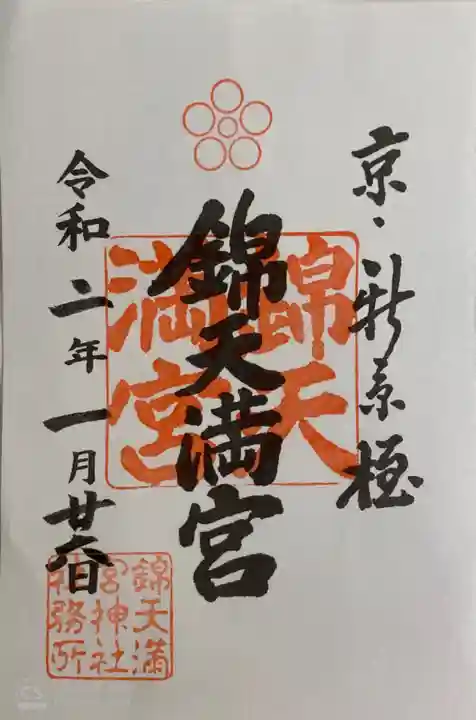 京・新京極
錦天満宮
錦天
満宮
令和二年一月廿六日
錦天満
宮神社
社務所